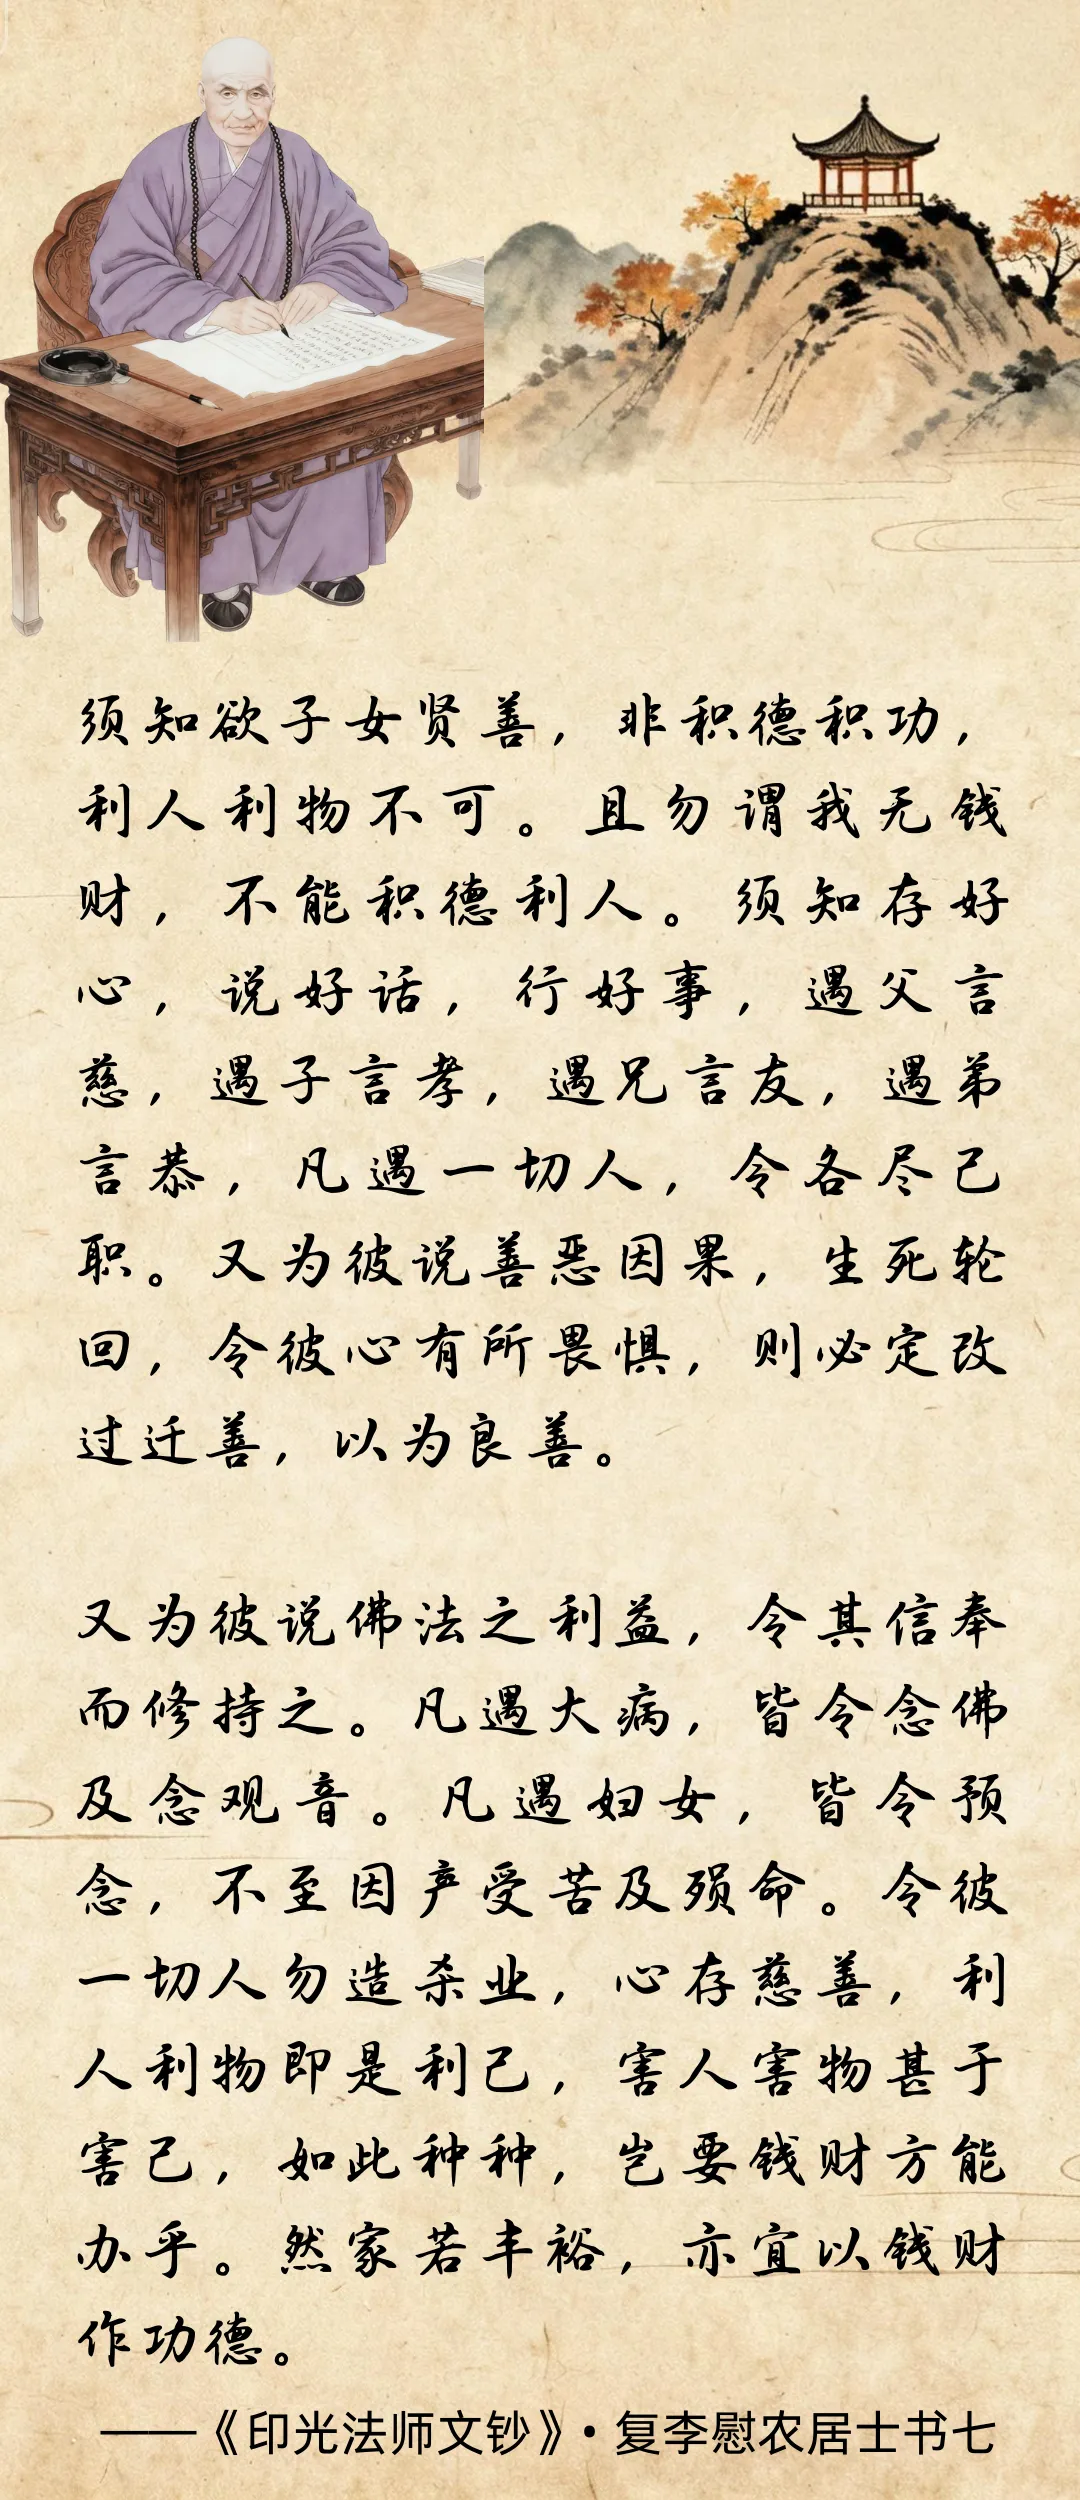 须知欲子女贤善，非积德积功，
利人利物不可。且勿谓我无钱
财，不能积德利人。须知存好
心，说好话，行好事，遇父言
慈，遇子言孝，遇兄言友，遇弟
言恭，凡遇一切人，令各尽己
职。又为彼说善恶因果，生死轮
回，令彼心有所畏惧，则必定改
过迁善，以为良善。
又为彼说佛法之利益，令其信奉
而修持之。凡遇大病，皆令念佛
及念观音。凡遇妇女，皆令预
念，不至因产受苦及殒命。令彼
一切人勿造杀业，心存慈善，利
人利物即是利己，害人害物甚于
害己，如此种种，岂要钱财方能
办乎。然家若丰裕，亦宜以钱财
作功德。
——《印光法师文钞》•复李慰农居士书七